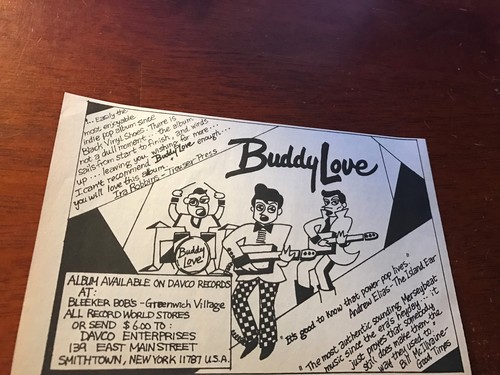 "... Easily the
most enjoyable
indie pop album since
Black Vinyl Shoes. There is
not a dull moment ... the album
sails from start to finish, and winds
up ... leaving you wishing for more ...
I can't recommend Buddy Love enough ...
you will love this album."
Ira Robbins - Trouser Press
Buddy Love
Buddy
Love
ALBUM AVAILABLE ON DAVCO RECORDS
AT:
BLEEKER BOB'S - Greenwich Village
ALL RECORD WORLD STORES
OR SEND $6.00 TO:
DAVCO ENTERPRISES
139 EAST MAIN STREET
SMITHTOWN, NEW YORK 11787 U.S.A.
"It's good to know that power pop lives."
Andrew Elias - The Island Ear
"The most authentic sounding Merseybeat
music since the era's heyday ... it
just proves that somebody
still does make them the
way they used to."
Bill McIlvaine -
Good Times